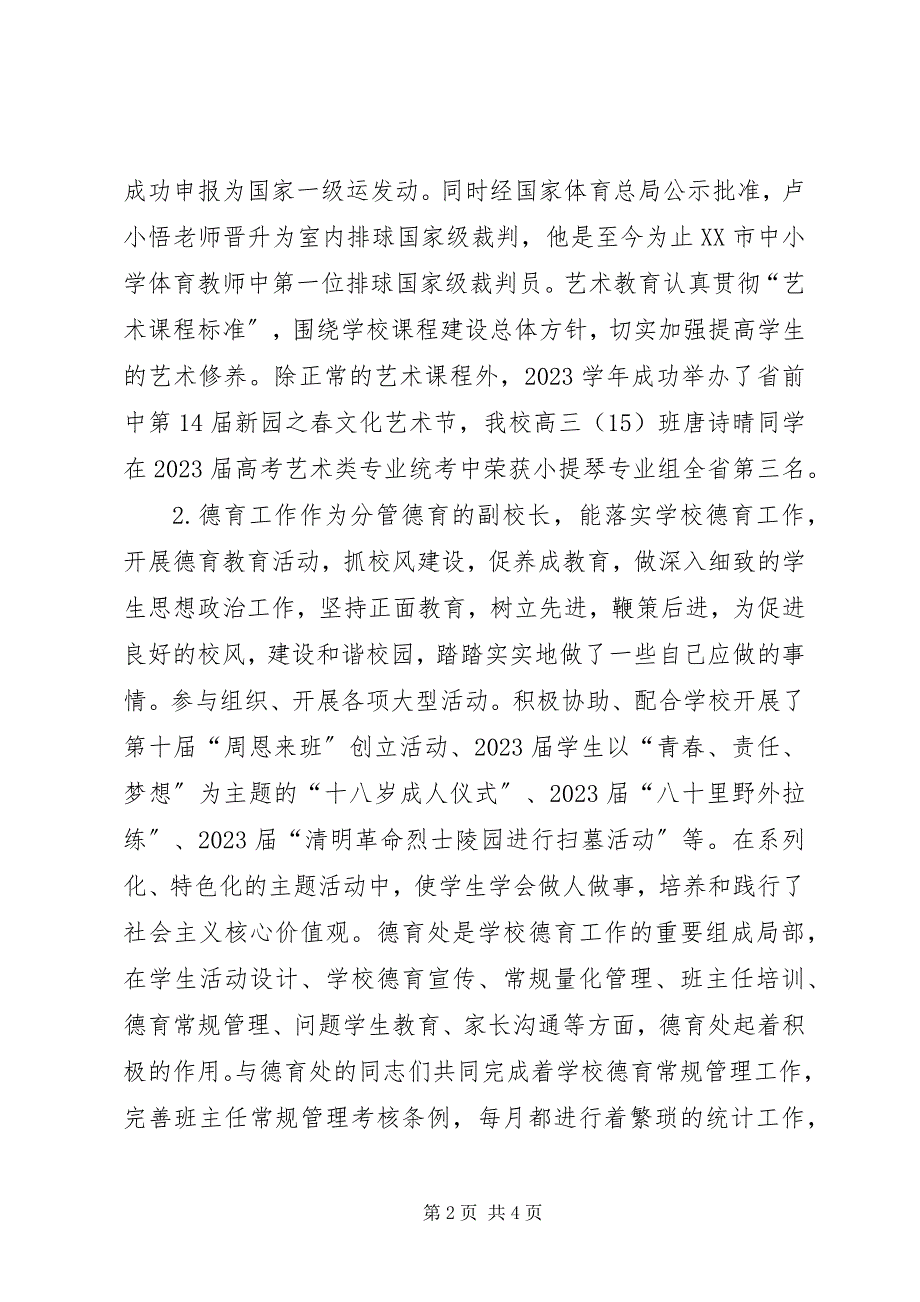 成功申报为国家一级运发动。同时经国家体育总局公示批准，卢
小悟老师晋升为室内排球国家级裁判，他是至今为止 XX 市中小
学体育教师中第一位排球国家级裁判员。艺术教育认真贯彻“艺
术课程标准〞，围绕学校课程建设总体方针，切实加强提高学生
的艺术修养。除正常的艺术课程外，2023 学年成功举办了省前
中第 14 届新园之春文化艺术节，我校高三（15）班唐诗晴同学
在 2023 届高考艺术类专业统考中荣获小提琴专业组全省第三名。
2. 德育工作作为分管德育的副校长，能落实学校德育工作，
开展德育教育活动，抓校风建设，促养成教育，做深入细致的学
生思想政治工作，坚持正面教育，树立先进，鞭策后进，为促进
良好的校风，建设和谐校园，踏踏实实地做了一些自己应做的事
情。参与组织、开展各项大型活动。积极协助、配合学校开展了
第十届“周恩来班〞创立活动、2023 届学生以“青春、责任、
梦想〞为主题的“十八岁成人仪式〞、2023 届“八十里野外拉
练〞、2023 届“清明革命烈士陵园进行扫墓活动〞等。在系列
化、特色化的主题活动中，使学生学会做人做事，培养和践行了
社会主义核心价值观。德育处是学校德育工作的重要组成局部，
在学生活动设计、学校德育宣传、常规量化管理、班主任培训、
德育常规管理、问题学生教育、家长沟通等方面，德育处起着积
极的作用。与德育处的同志们共同完成着学校德育常规管理工作，
完善班主任常规管理考核条例，每月都进行着繁琐的统计工作，
第 2 页 共 4 页